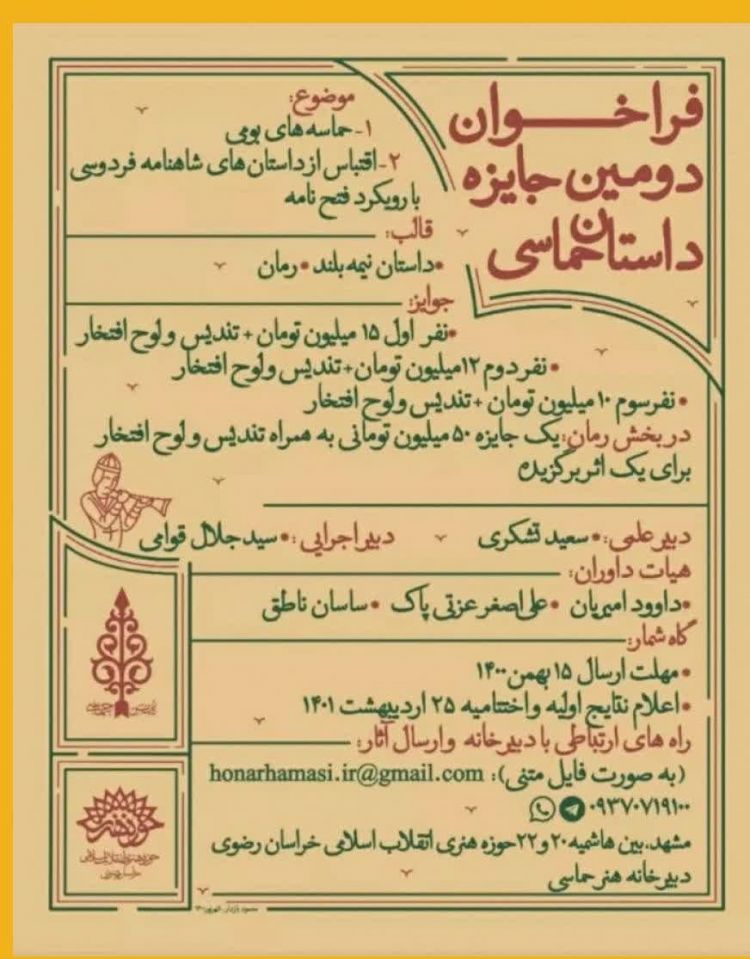 فراخوان
دومین جایزه
داستان حماسی
موضوع:
۱- حماسه های بومی
۲- اقتباس از داستان های شاهنامه فردوسی
با رویکرد فتح نامه
قالب:
•داستان نیمه بلند •رمان
جوایز:
•نفر اول ۱۵ میلیون تومان + تندیس و لوح افتخار
•نفر دوم ۱۲میلیون تومان+ تندیس و لوح افتخار
•نفرسوم ۱۰ میلیون تومان +تندیس و لوح افتخار
در بخش رمان: یک جایزه ۵۰ میلیون تومانی به همراه تندیس و لوح افتخار
برای یک اثر برگزیده
دبیر علمی: •سعید تشکری
دبیر اجرایی: •سید جلال قوامی
هیات داوران:
•داوود امیریان •علی اصغر عزتی پاک •ساسان ناطق
گاه شمار:
•مهلت ارسال ۱۵ بهمن ۱۴۰۰
•اعلام نتایج اولیه و اختتامیه ۲۵ اردیبهشت ۱۴۰۱
راه های ارتباطی با دبیرخانه و ارسال آثار:
(به صورت فایل متنی): honarhamasi.ir@gmail.com
۰۹۳۷۰۷۱۹۱۰۰
مشهد، بین هاشمیه ۲۰ و ۲۲ حوزه هنری انقلاب اسلامی خراسان رضوی
دبیرخانه هنر حماسی
حوزه هنری انقلاب اسلامی
خراسان رضوی